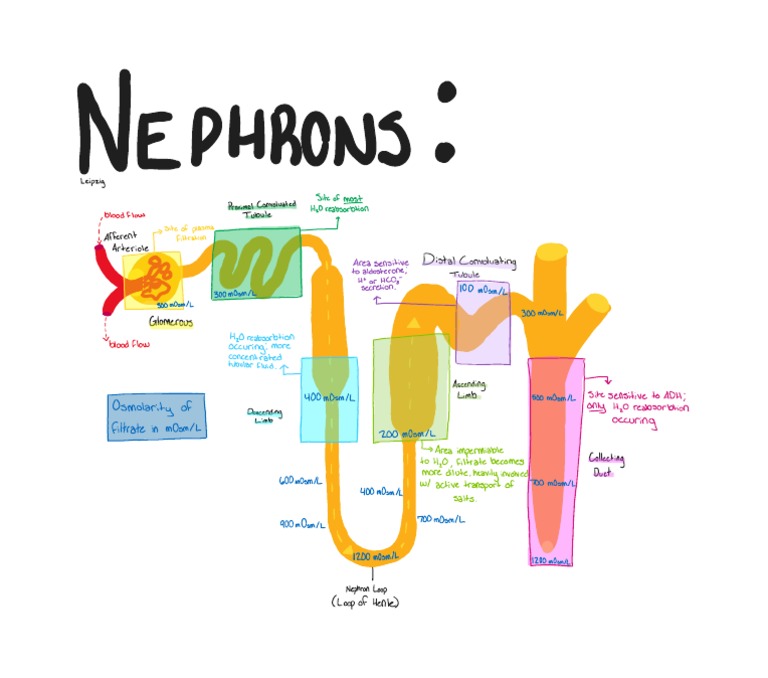 NEPHRONS:
Leipzig
blood flow
Afferent
Arteriole
Site of plasma
filtration
300 mOsm/L
Glomerous
blood flow
Proximal Convoluted
Tubule
Site of most
H₂O reabsorbtion
300 mOsm/L
H₂O reabsorbtion
occuring; more
concentrated
tubular fluid.
400 mOsm/L
Descending
Limb
Osmolarity of
filtrate in mOsm/L
600 mOsm/L
900 mOsm/L
1200 mOsm/L
Nephron Loop
(Loop of Henle)
400 mOsm/L
700 mOsm/L
200 mOsm/L
Ascending
Limb
Area impermiable
to H₂O, filtrate becomes
more dilute. heavily involved
w/ active transport of
salts.
Area sensitive
to aldosterone,
H⁺ or HCO₃⁻
secretion.
Distal Convoluting
Tubule
100 mOsm/L
300 mOsm/L
Site sensitive to ADH;
only H₂O reabsorbtion
occuring
Collecting
Duct
700 mOsm/L
1200 mOsm/L